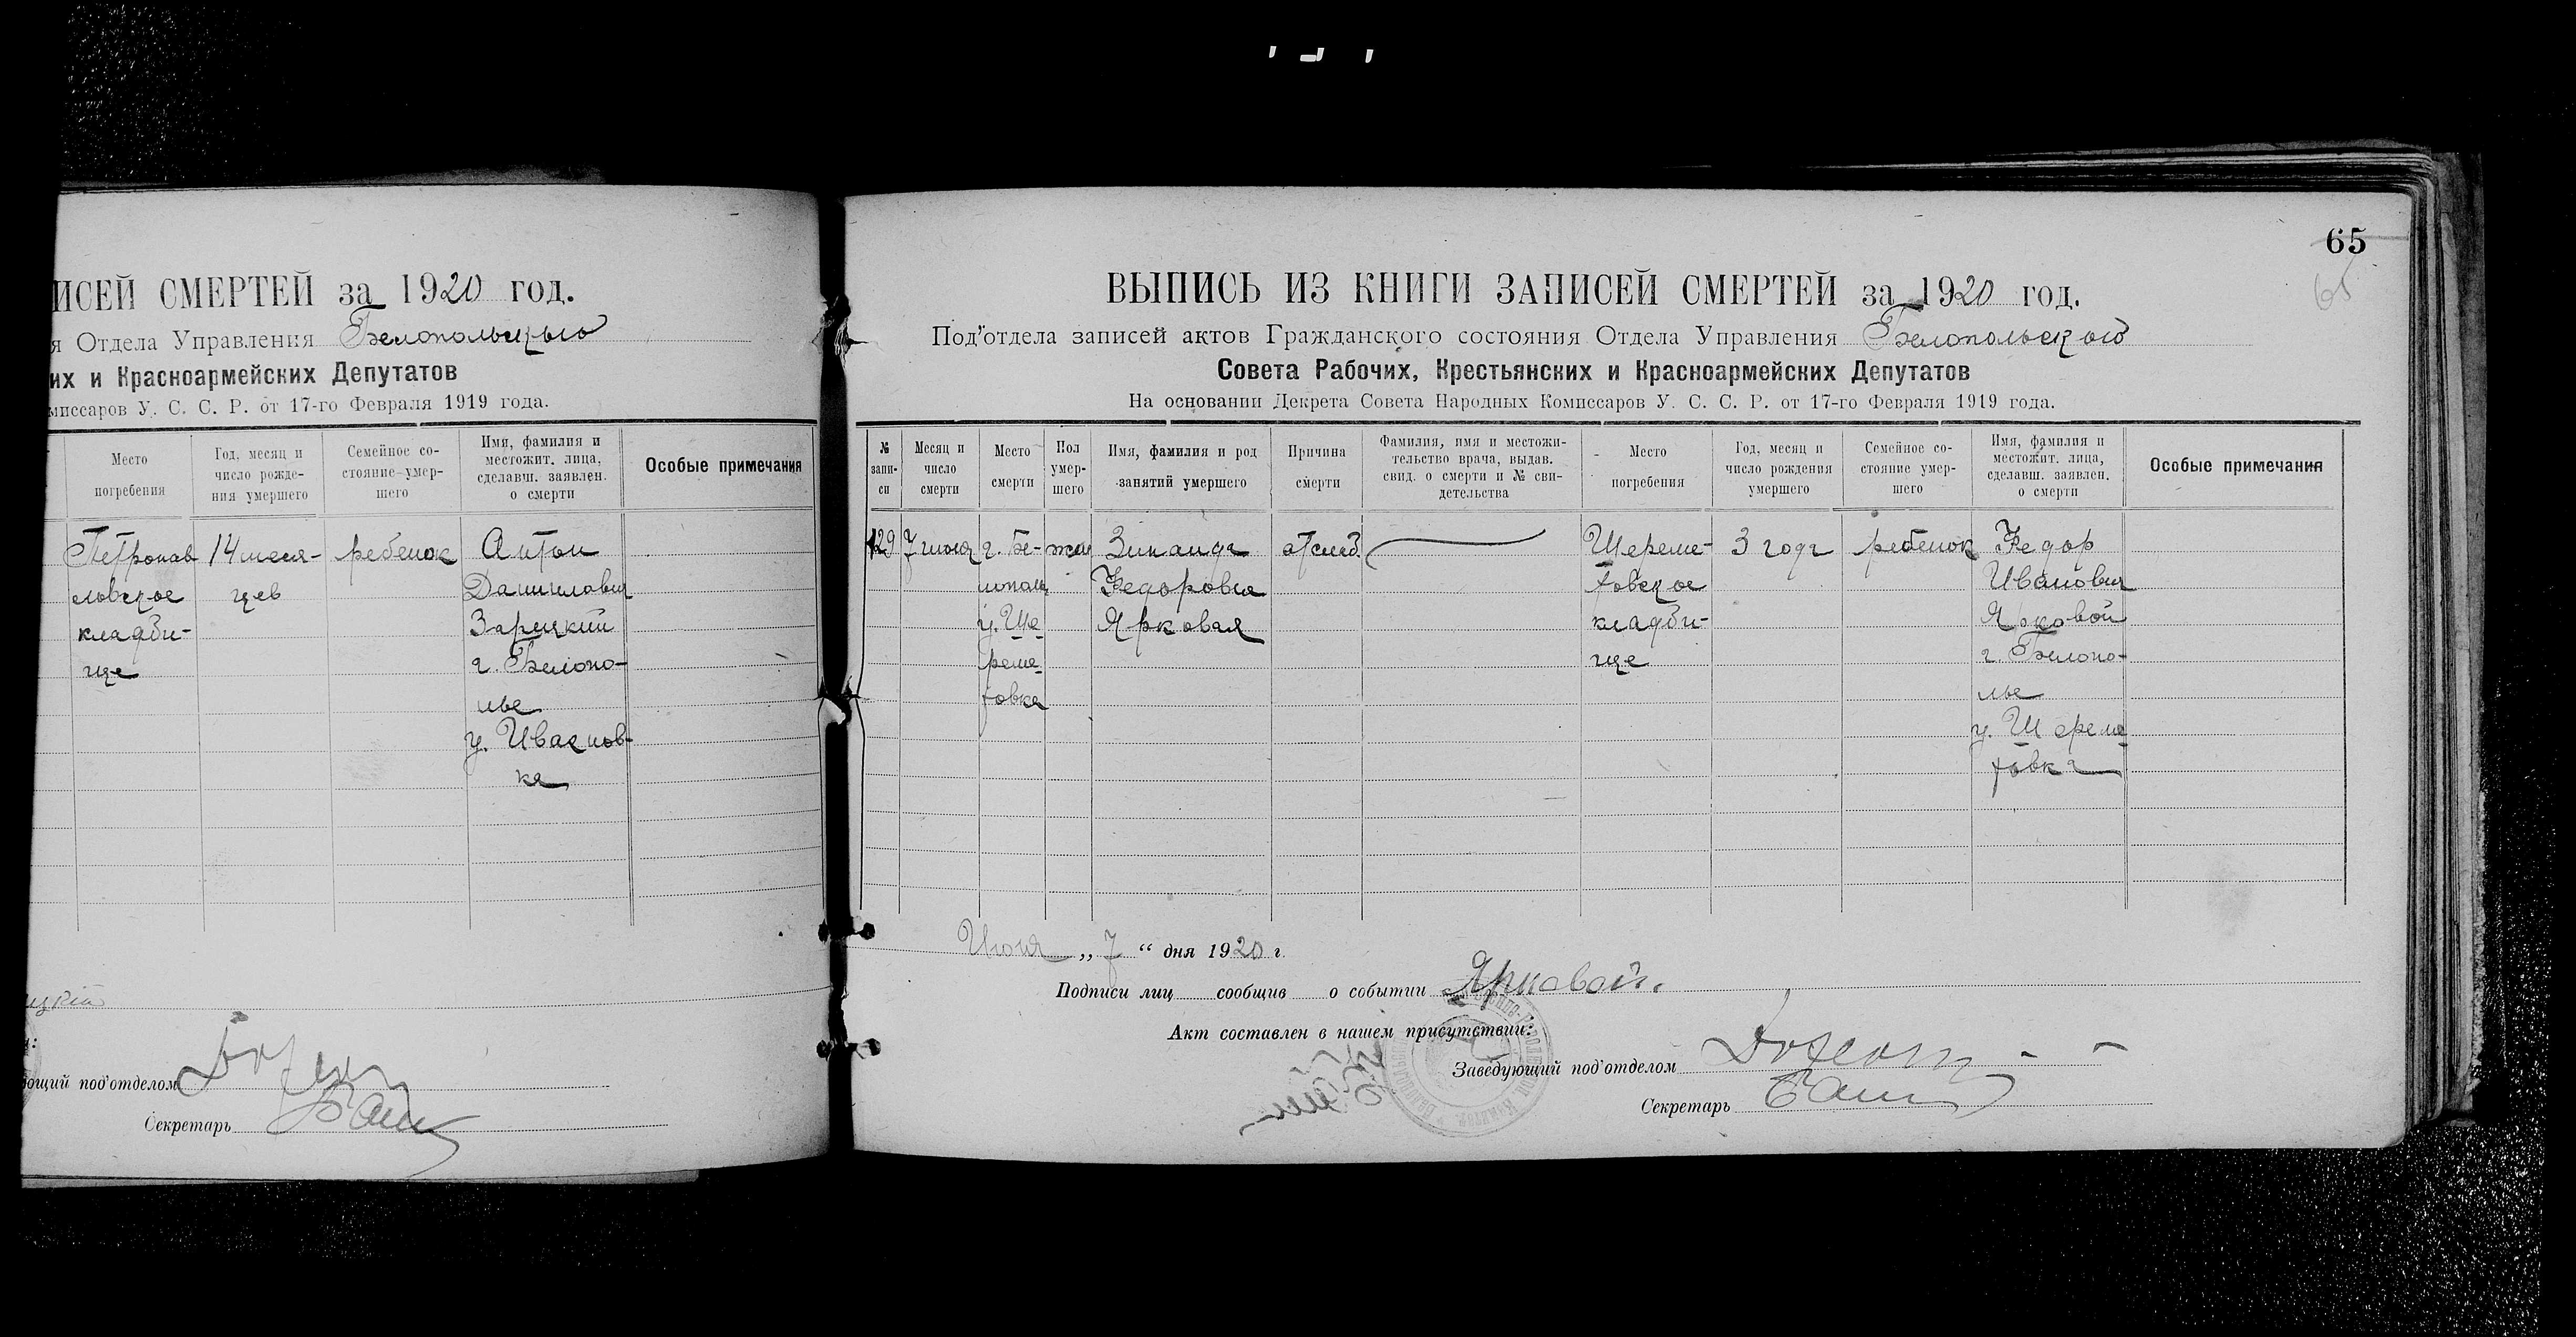 ИСЕЙ СМЕРТЕЙ за 1920 год.
я Отдела Управления Белопольского
их и Красноармейских Депутатов
миссаров У. С. С. Р. от 17-го Февраля 1919 года.
Место погребения
Год, месяц и число рожде-ния умершего
Семейное со-стояние-умер-шего
Имя, фамилия и местожит. лица, сделавш. заявлен. о смерти
Особые примечания
Петропав
ловское
кладби-
ще
14 меся-
цев
ребенок
Антон
Данилович
Зарицкий
г. Белопо-
лье
у. Ивановкв-
ка
ицкий
ющий под'отделом
Секретарь
65
65
ВЫПИСЬ ИЗ КНИГИ ЗАПИСЕЙ СМЕРТЕЙ за 1920 год.
Под'отдела записей актов Гражданского состояния Отдела Управления Белопольского
Совета Рабочих, Крестьянских и Красноармейских Депутатов
На основании Декрета Совета Народных Комиссаров У. С. С. Р. от 17-го Февраля 1919 года.
№ запи-си
Месяц и число смерти
Место смерти
Пол умер-шего
Имя, фамилия и род занятий умершего
Причина смерти
Фамилия, имя и местожи-тельство врача, выдав. свид. о смерти и № сви-детельства
Место погребения
Год, месяц и число рождения умершего
Семейное со-стояние умер-шего
Имя, фамилия и местожит. лица, сделавш. заявлен. о смерти
Особые примечания
129
7 июня
г. Бе-
лополь
у. Ше
реме-
товка
жен
Зинаида
Федоровна
Ярковая
Шереме-
товское
кладби-
ще
3 года
ребенок
Федор
Иванович
Ярковой
г. Белопо-
лье
у. Шереме
товка
Июня „ 7 “ дня 1920 г.
Подписи лиц сообщив о событии Ярковой.
Акт составлен в нашем присутствии:
Заведующий под'отделом
Секретарь